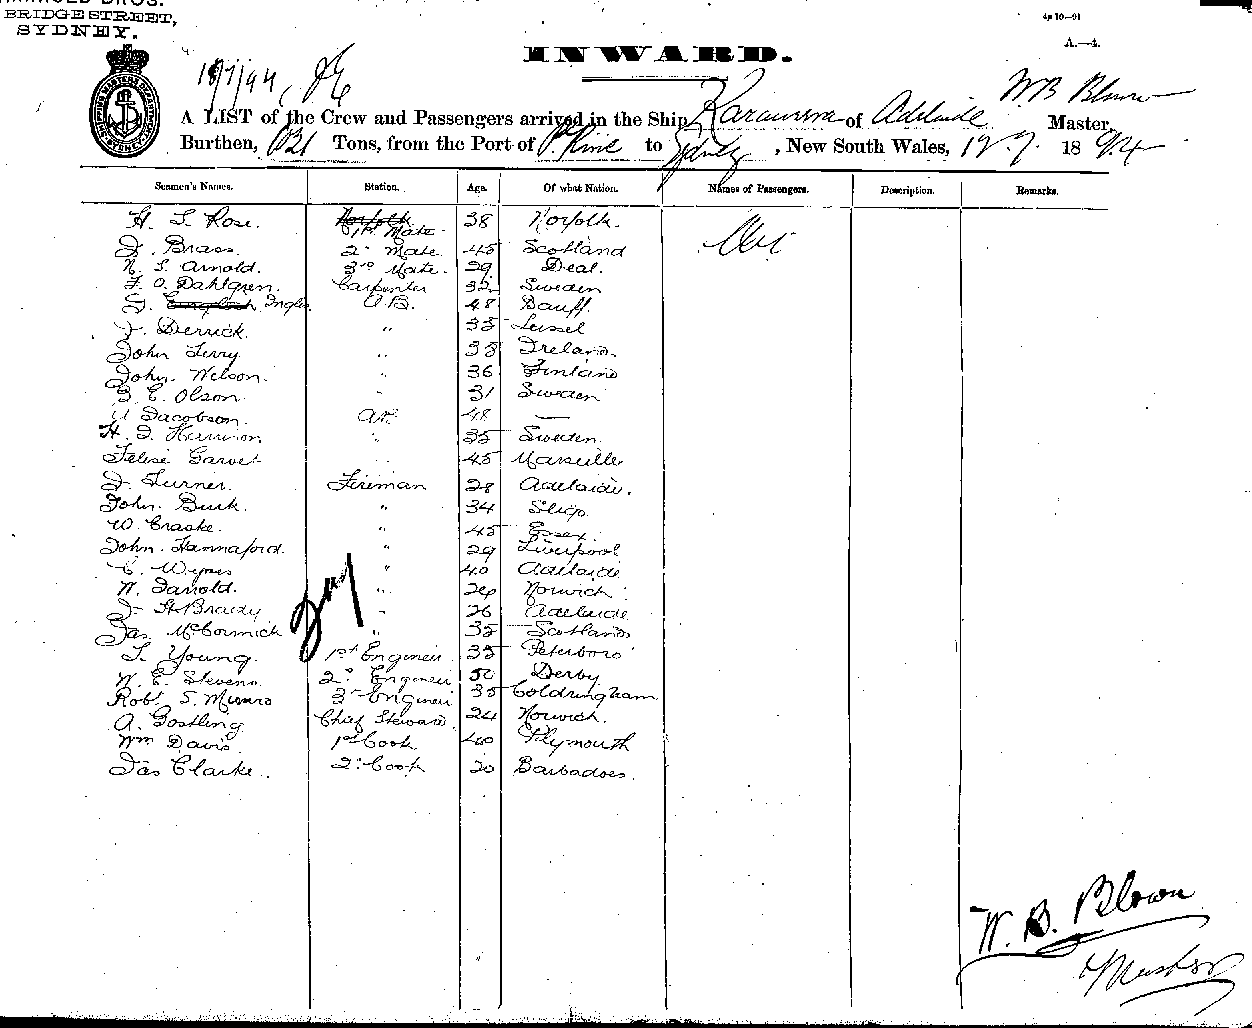 BRIDGE STREET,
SYDNEY.
4p 10—91
A.—4.
INWARD.
18/7/94
W B Blown
A LIST of the Crew and Passengers arrived in the Ship Kararweera of Adelaide Master,
Burthen, Tons, from the Port of P. Pirie to Sydney, New South Wales, 18 94
Seamen's Names. Station. Age. Of what Nation. Names of Passengers. Description. Remarks.
H. S. Rose. Norfolk 1st Mate 38 Norfolk.
J. Brass. 2nd Mate 45 Scotland
N. S. Arnold. 3rd Mate. 29 Deal.
F. O. Dahlgren. Carpenter 32 Sweden
Inglis A.B. 48 Banff.
J. Derrick. " 33
John Terry " 38 Ireland.
John Nelson. " 36 Finland
E. Olson. " 31 Sweden
Jacobson. 48 —
H. J. Harrison " 35 Sweden.
45 Marseilles
J. Turner. Fireman 28 Adelaide.
John Burk. " 34 Sligo.
W. Craske. " 45 Essex.
John Hannaford. " 29 Liverpool
" 40 Adelaide
W. Jarrold. " 26 Norwich
J. H Brady " 26 Adelaide
Jas. McCormick " 35 Scotland
T. Young. 1st Engineer 35 Peterboro'
W. E. Stevens. 2nd Engineer 50 Derby
Robt. S. Munro 3rd Engineer 35 Coldringham
A. Gostling Chief Steward. 24 Norwich.
Wm Davis. 1st Cook 40 Plymouth
Jas Clarke. 2nd Cook 20 Barbadoes.
W. B. Blown
Master